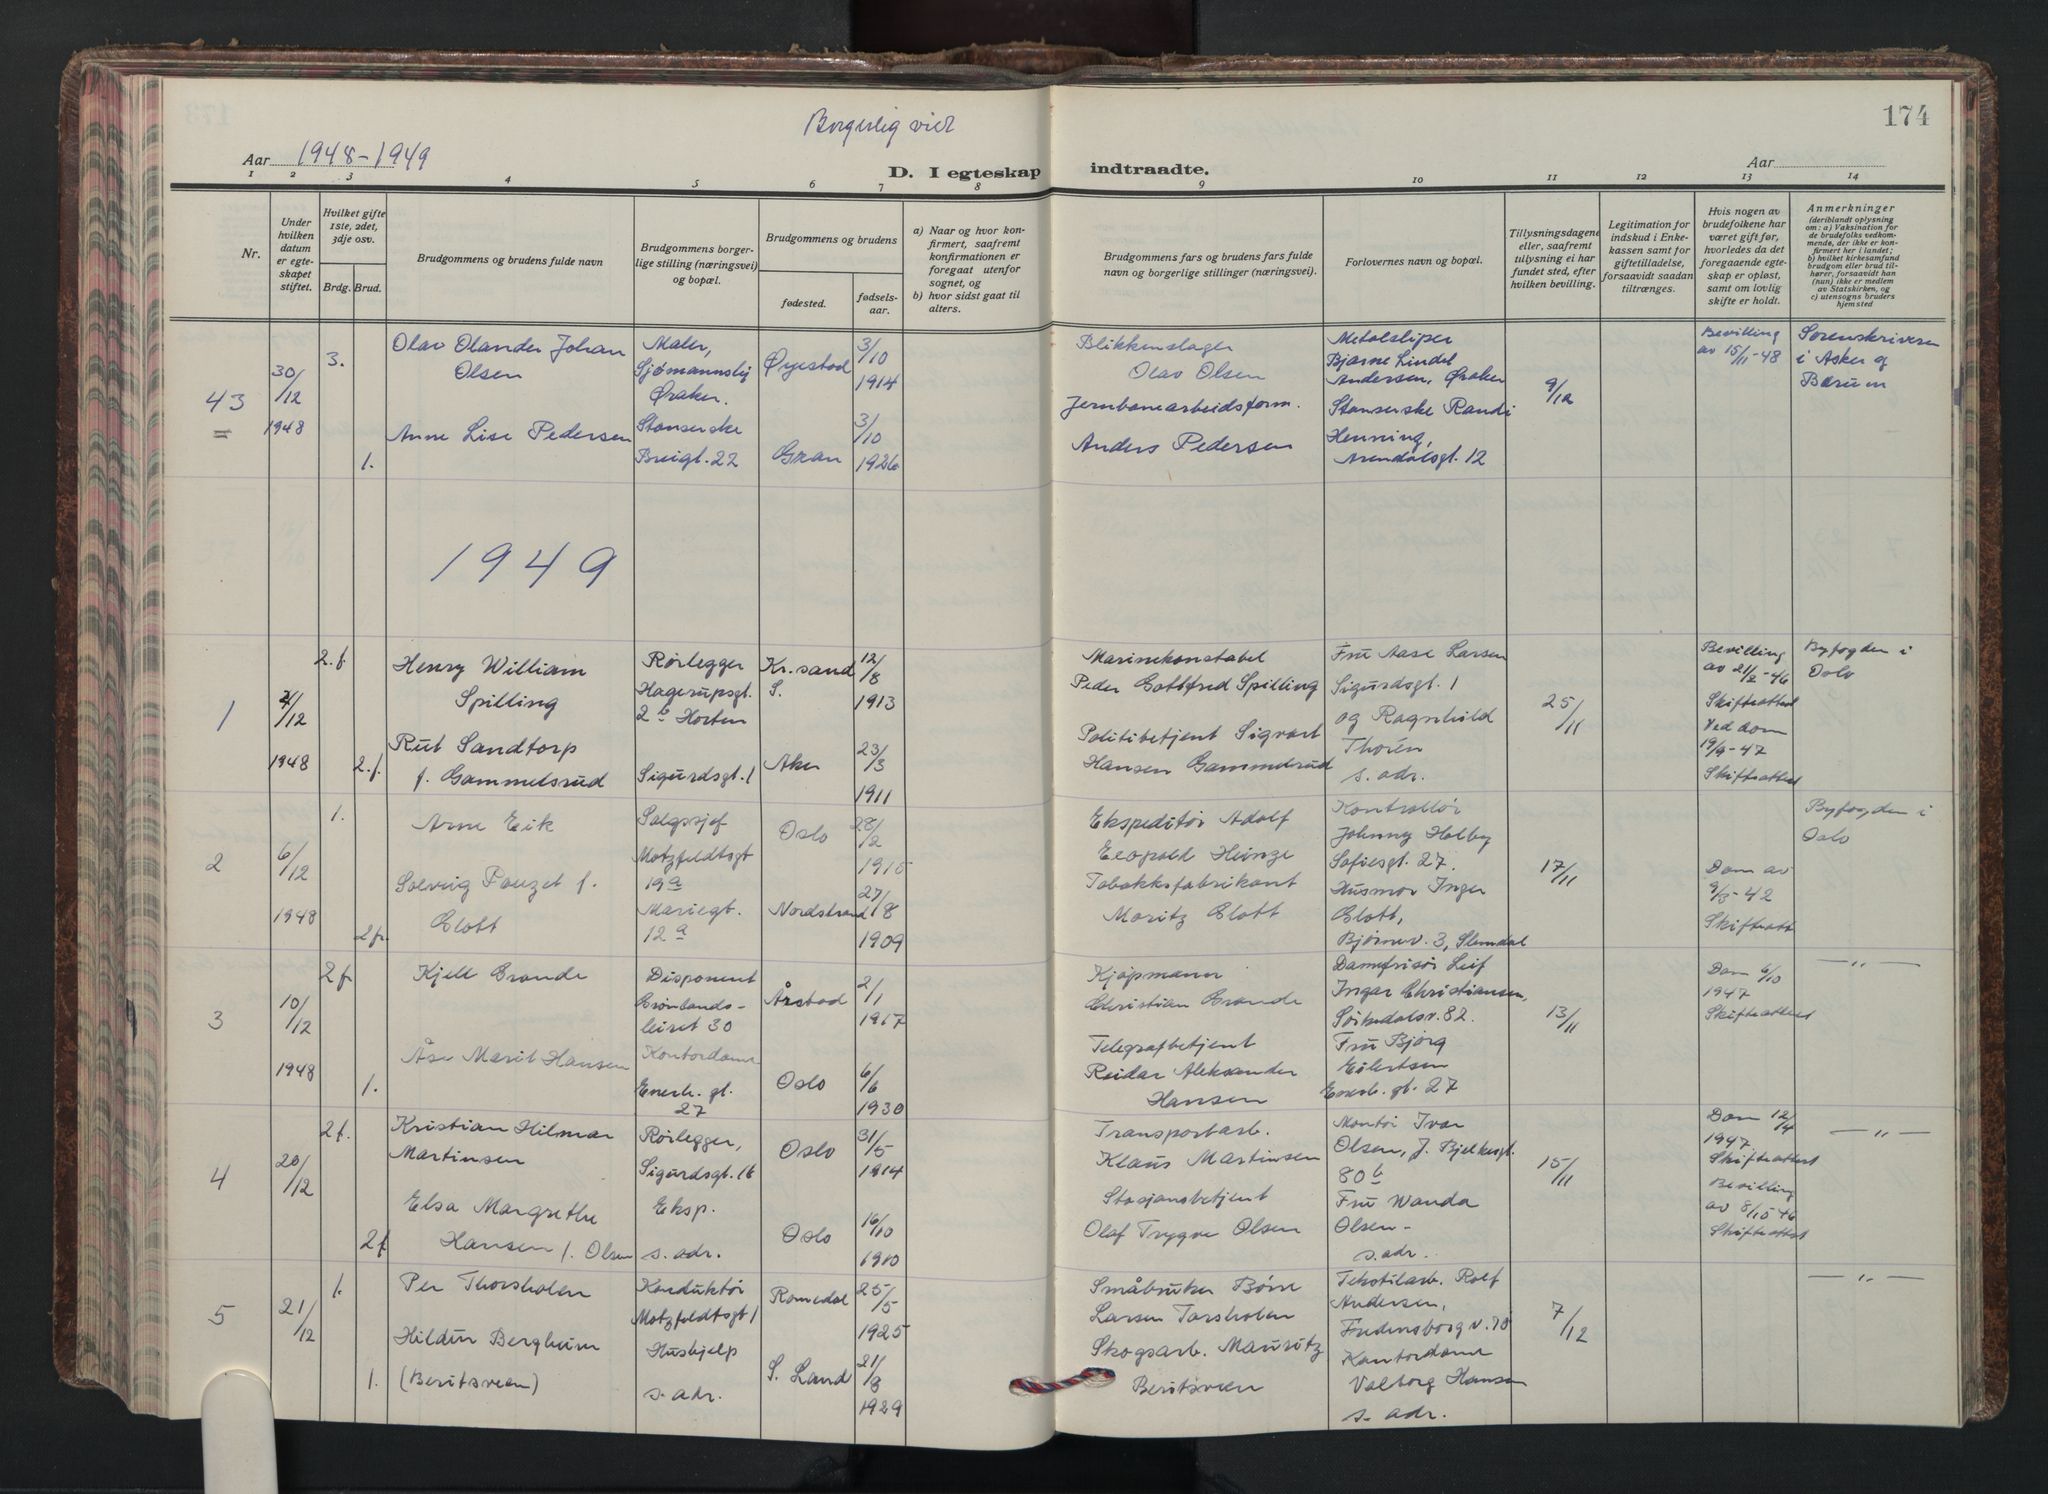 Borgerlig viet
174
Aar 1948-1949
D. I egteskap
indtraadte.
Aar
1 2 3 4 5 6 7 8 9 10 11 12 13 14
Nr.
Under hvilken datum er egteskapet stiftet.
Hvilket gifte 1ste, 2det, 3dje osv.
Brdg. Brud.
Brudgommens og brudens fulde navn
Brudgommens borgerlige stilling (næringsvei) og bopæl.
Brudgommens og brudens
fødested.
fødselsaar.
a) Naar og hvor konfirmert, saafremt konfirmationen er foregaat utenfor sognet, og
b) hvor sidst gaat til alters.
Brudgommens fars og brudens fars fulde navn og borgerlige stillinger (næringsvei).
Forlovernes navn og bopæl.
Tillysningsdagene eller, saafremt tillysning ei har fundet sted, efter hvilken bevilling.
Legitimation for indskud i Enkekassen samt for giftetilladelse, forsaavidt saadan tiltrænges.
Hvis nogen av brudefolkene har været gift før, hvorledes da det foregaaende egteskap er opløst, samt om lovlig skifte er holdt.
Anmerkninger
(deriblandt oplysning om: a) Vaksination for de brudefolks vedkommende, der ikke er konfirmert her i landet; b) hvilket kirkesamfund brudgom eller brud tilhører, forsaavidt han (hun) ikke er medlem av Statskirken, og c) utensogns bruders hjemsted
43
30/12
1948
3.
Olav Olander Johan
Olsen
Maler,
Øraker.
Øyestad
3/10
1914
Blikkenslager
Olav Olsen
Metalsliper
Bjarne Lindel
Andersen, Øraker
9/12
Bevilling
av 15/11-48
Sorenskriveren
i Asker og
Bærum
1.
Anne Lise Pedersen
Stanserske
Breigt. 22
Gran
3/10
1926
Jernbanearbeidsform.
Anders Pedersen
Stanserske Randi
Henning,
Arendalsgt. 12
1949
1
2/12
1948
2.f.
Henry William
Spilling
Rørlegger
Hagerupsgt.
2b Horten
Kr.sand
S.
12/8
1913
Marinekonstabel
Peder Gottfred Spilling
Fru Aase Larsen
Sigurdsgt. 1
og Ragnhild
Thorén
s. adr.
25/11
Bevilling
av 21/2-46
Skifteattest
Ved dom
19/9-47
Skifteattest
Byfogden i
Oslo
2.f.
Rut Sandtorp
f. Gammelsrud
Sigurdsgt. 1
Aker
23/3
1911
Politibetjent Sigvart
Hansen Gammelsrud
2
6/12
1948
1.
Arne Eik
Salgssjef
Motzfeldtsgt
19a
Oslo
28/2
1915
Ekspeditør Adolf
Leopold Heinze
Kontrollør
Johnny Holby
Sofiesgt. 27.
17/11
Dom av
9/3-42
Skifteatt
Byfogden i
Oslo
2f.
Solveig Pauzet f.
Glott
Mariegt.
12a
Nordstrand
27/8
1909
Tobakksfabrikant
Moritz Glott
Husmor Inger
Glott,
Bjørnev. 3, Slemdal
3
10/12
1948
2f
Kjell Grande
Disponent
Grønlands-
leiret 30
Årstad
2/1
1917
Kjøpmann
Christian Grande
Damefrisør Leif
Ingar Christiansen,
Sørkedalsv. 82.
13/11
Dom 6/10
1947
Skifteattest
— „ —
1.
Åse Marit Hansen
Kontordame
Enerh. gt.
27
Oslo
6/6
1930
Telegrafbetjent
Reidar Aleksander
Hansen
Fru Bjørg
Eilertsen
Enerh. gt. 27
4
20/12
2f.
Kristian Hilmar
Martinsen
Rørlegger,
Sigurdsgt. 16
Oslo
31/5
1914
Transportarb.
Klaus Martinsen
Montør Ivar
Olsen, J. Bjelkesgt.
80b
15/11
Dom 12/4
1947.
Skifteattest
Bevilling
av 8/10 46
Skifteattest
— „ —
2f
Elsa Margrethe
Hansen f. Olsen
Eksp.
s. adr.
Oslo
16/10
1910
Stasjonsbetjent
Olaf Trygve Olsen
Fru Wanda
Olsen-
s. adr.
5
21/12
1.
Per Thorsholen
Konduktør
Motzfeldtsgt 1
Romedal
25/5
1925
Småbruker Børre
Larsen Torsholen
Tekstilarb. Rolf
Andersen,
Fredensborg v. 18
7/12
— „ —
1.
Hildur Bergheim
(Beritsveen)
Hushjelp
s. adr.
S. Land
21/8
1929
Skogsarb. Mauritz
Beritsveen
Kontordame
Valborg Hansen
s. adr.